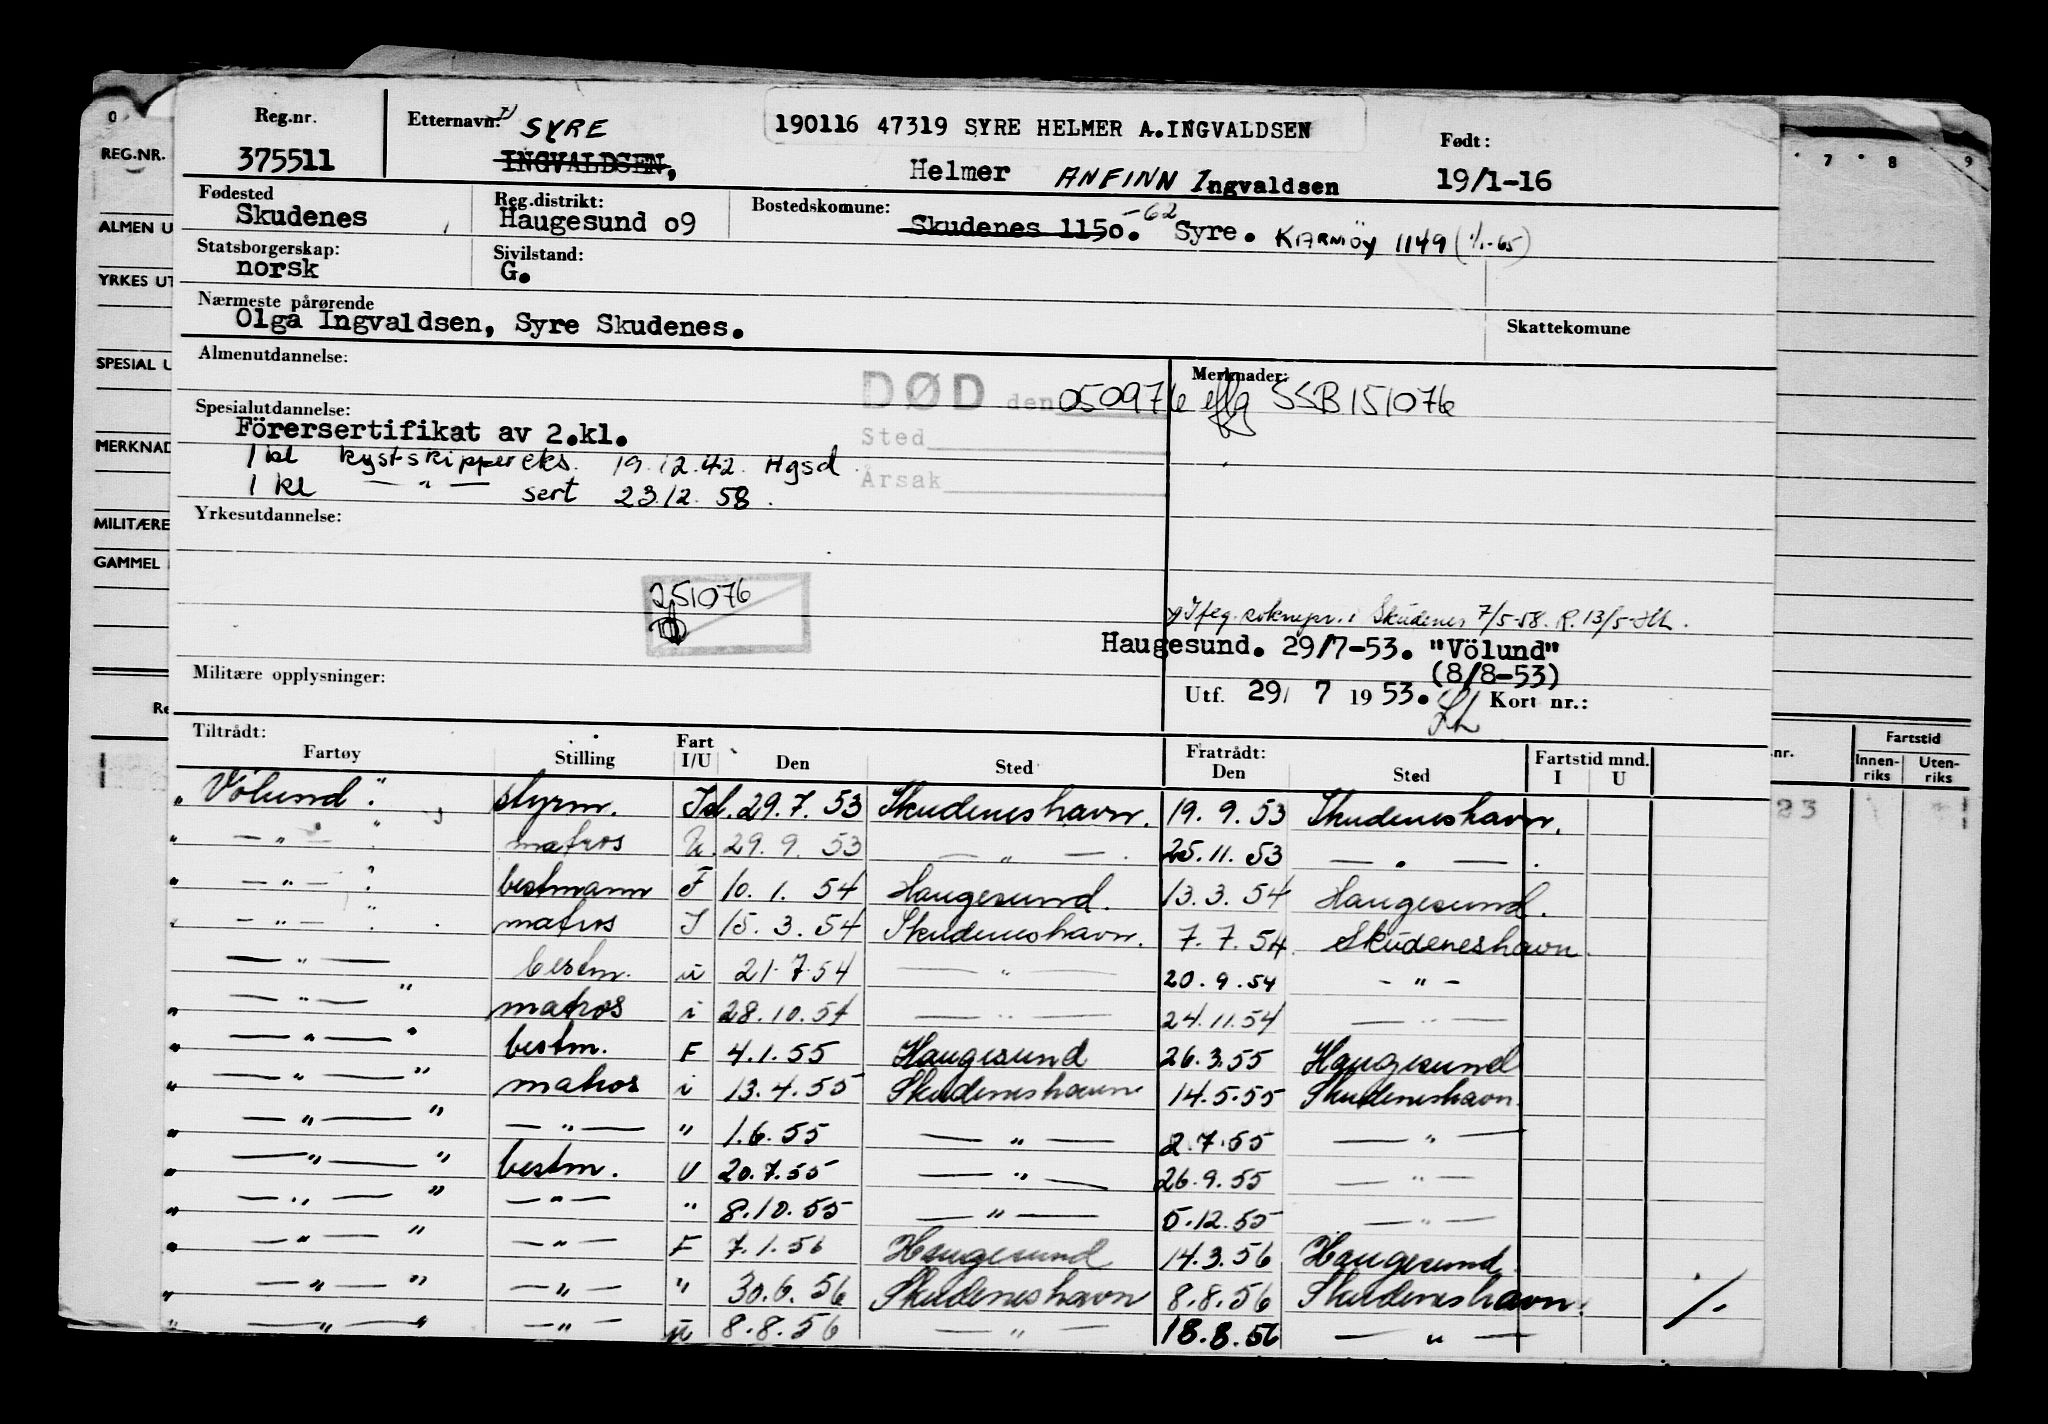 0 7 8 9
REG.NR.
ALMEN U
YRKES UT
SPESIAL U
MERKNAD
MILITÆRE
GAMMEL
Re
nr. Fartstid
Innen-riks Uten-riks
23
Reg.nr. Etternavn: x) SYRE 190116 47319 SYRE HELMER A.INGVALDSEN Født:
375511 INGVALDSEN, Helmer ANFINN Ingvaldsen 19/1-16
Fødested Reg.distrikt: Bostedskomune:
Skudenes Haugesund 09 Skudenes 1150. -62 Syre. KARMØY 1149 (1/1-65)
Statsborgerskap: Sivilstand:
norsk G.
Nærmeste pårørende
Olga Ingvaldsen, Syre Skudenes. Skattekomune
Almenutdannelse: Merknader:
DØD den 050976 iflg SSB 151076
Spesialutdannelse: Sted
Förersertifikat av 2.kl.
1 kl kystskippereks. 19.12.42. Hgsd Årsak
1 kl — " — sert 23.12.58.
Yrkesutdannelse:
251076
x) Iflg. sokнepr. i Skudenes 7/5-58. R. 13/5-
Haugesund. 29/7-53. "Völund"
(8/8-53)
Militære opplysninger: Utf. 29/ 7 1953. Kort nr.:
Tiltrådt: Fratrådt:
Fartøy Stilling Fart I/U Den Sted Den Sted Fartstid mnd. I U
"Völund". styrm. Isl. 29.7.53 Skudeneshavn. 19.9.53 Skudeneshavn.
" — " — " matros U. 29.9.53 — " — . 25.11.53 — " — .
" — " — " bestmann F 10.1.54 Haugesund. 13.3.54 Haugesund.
" — " — " . matros I 15.3.54 Skudeneshavn. 7.7.54 Skudeneshavn.
— " — bestm. u 21.7.54 — " — 20.9.54 — " —
" — " — " matros i 28.10.54 — " — 24.11.54 — " —
" — " — " bestm. F 4.1.55 Haugesund 26.3.55 Haugesund
" — " — " matros i 13.4.55 Skudeneshavn 14.5.55 Skudeneshavn.
" — " — " — " — " 1.6.55 — " — 2.7.55 — " —
" — " — " bestm. U 20.7.55 — " — 26.9.55 — " —
" — " — " — " — " 8.10.55 — " — 5.12.55 — " —
" — " — " — " — F 7.1.56 Haugesund 14.3.56 Haugesund.
" — " — " — " — " 30.6.56 Skudeneshavn 8.8.56 Skudeneshavn. ./.
" — " — " — " — u 8.8.56 — " — 18.8.56 — " —